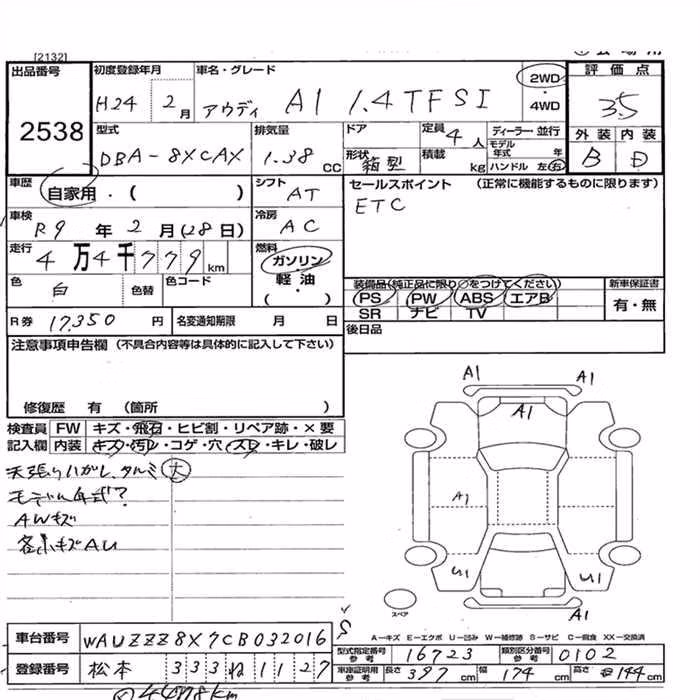 [2132]
出品番号 2538
初度登録年月 H24 2月
車名・グレード アウディ A1 1.4TFSI
2WD・4WD
評価点 3.5
外装 B 内装 D
型式 DBA-8XCAX
排気量 1.38 CC
ドア
形状 箱型
定員 4人
積載 kg
ディーラー・並行
モデル年式 年
ハンドル 左・右
車歴 自家用・( )
シフト AT
セールスポイント (正常に機能するものに限ります)
ETC
車検 R9年2月(28日)
冷房 AC
走行 4万4千779km
燃料 ガソリン・軽油( )
色 白 色替 色コード
装備品(純正品に限り○をつけてください) 新車保証書
PS PW ABS エアB 有・無
SR ナビ TV
R券 17,350円 名変通知期限 月 日
後日品
注意事項申告欄 (不具合内容等は具体的に記入して下さい)
修復歴 有 (箇所 )
検査員 FW キズ・飛石・ヒビ割・リペア跡・×要
記入欄 内装 キズ・汚レ・コゲ・穴・スレ・キレ・破レ
天張りハガレ、タルミ 大
モデル年式?
AWキズ
各小キズAU
A1 A1
A1
A1
U1 U1
A1
スペア
A-キズ E-エクボ U-凹み W-補修跡 S-サビ C-腐食 XX-交換済
車台番号 WAUZZZ8X7CB032016
登録番号 松本 333 ね 1127
型式指定番号 参考 16723 類別区分番号 参考 0102
車庫証明用 参考 長さ 397cm 幅 174cm 高さ 144cm